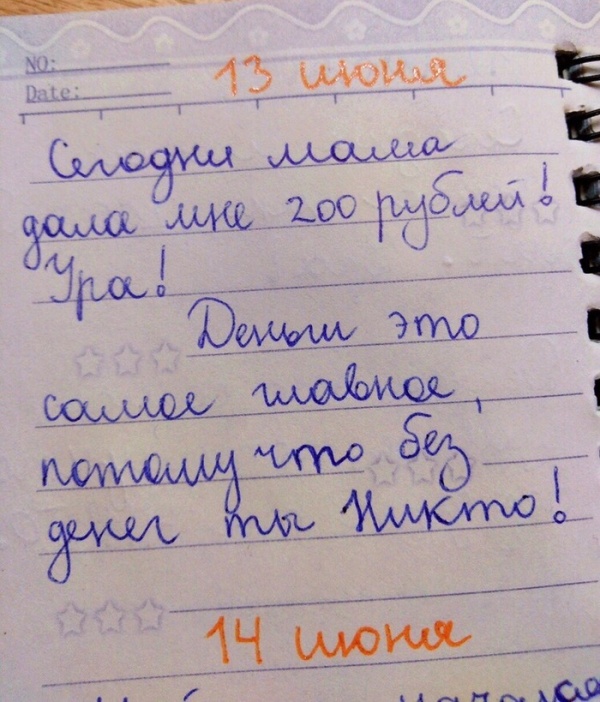 NO:
Date:
13 июня
Сегодня мама
дала мне 200 рублей!
Ура!
Деньги это
самое главное,
потому что без
денег ты Никто!
14 июня